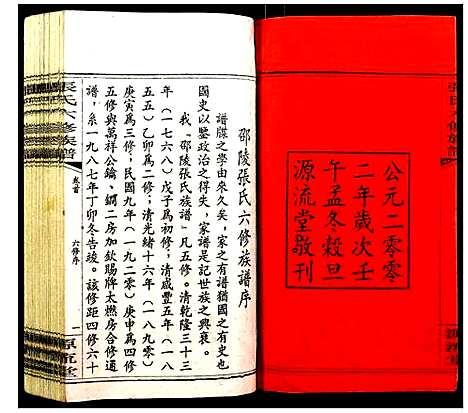 公元二零零
二年歲次壬
午孟冬穀旦
源流堂敬刊
邵陵張氏六修族譜序
譜牒之學由來久矣，家之有譜猶國之有史也
國史以鑒政治之得失，家譜是記世族之興衰。
我《邵陵張氏族譜》凡五修。清乾隆三十三
年（一七六八）戊子爲初修；清咸豐五年（一八
五五）乙卯爲二修；清光緒十六年（一八九〇）
庚寅爲三修；民國九年（一九二〇）庚申爲四修
五修與萬祥公鑰、鐗二房加欽賜牌太燃房合修通
譜，系一九八七年丁卯冬告竣。該修距四修六十
張氏六修族譜
卷首
六修序
一
源流堂